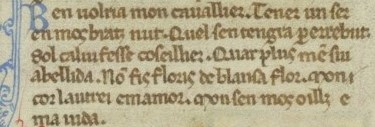 Ben uolria mon caualher. Tener un ser
en mos bratz nut. Quel sen tengra per erebut.
sol ca lui fesse coseilher. Quar plus mē sui
abellida. No fis floris de blansa flor. Mon
cor lautrei em amor. Mon sen mos oillz e
ma uida.